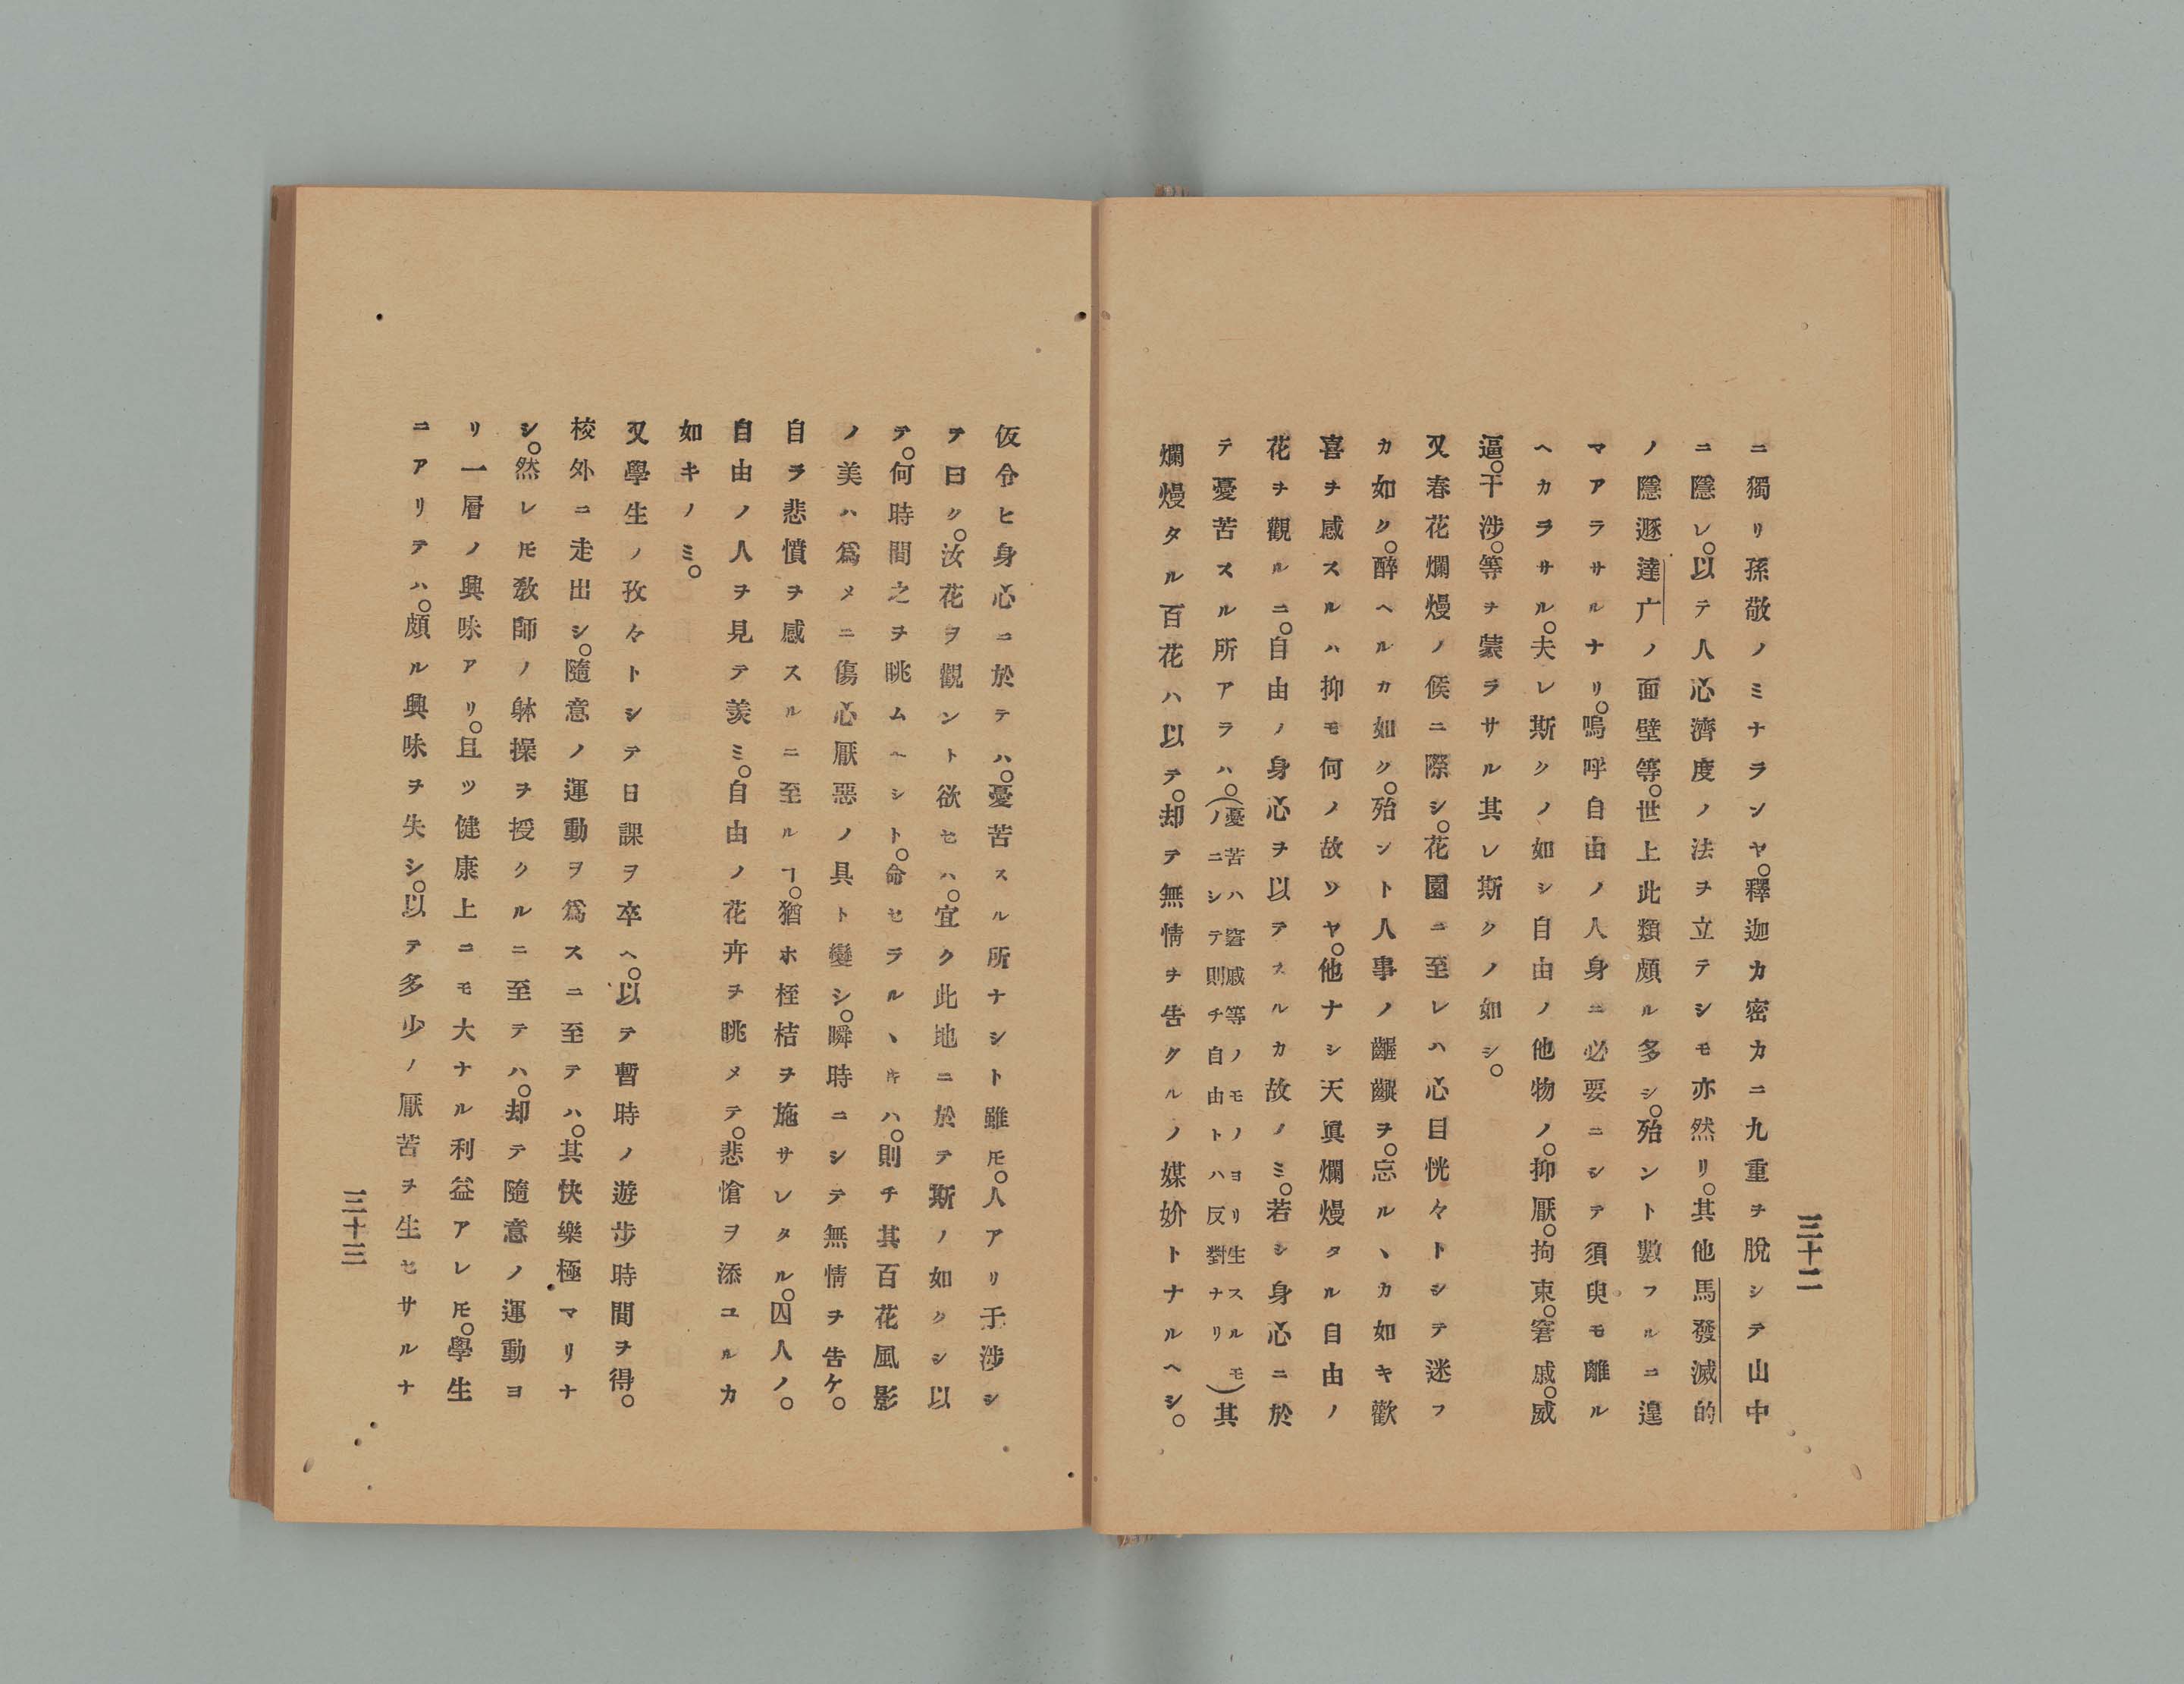 三十二
ニ獨リ孫敬ノミナランヤ。釋迦カ密カニ九重ヲ脫シテ山中
ニ隱レ。以テ人心濟度ノ法ヲ立テシモ亦然リ。其他馬發滅的
ノ隱遯達广ノ面壁等。世上此類頗ル多シ。殆ント數フルニ遑
マアラサルナリ。嗚呼自由ノ人身ニ必要ニシテ須臾モ離ル
ヘカラサル。夫レ斯クノ如シ自由ノ他物ノ。抑厭。拘束。窘戚。威
逼。干涉。等ヲ蒙ラサル其レ斯クノ如シ。
又春花爛熳ノ候ニ際シ。花園ニ至レハ心目恍々トシテ迷フ
カ如ク。醉ヘルカ如ク。殆ント人事ノ齷齪ヲ。忘ルヽカ如キ歡
喜ヲ感スルハ抑モ何ノ故ソヤ。他ナシ天眞爛熳タル自由ノ
花ヲ觀ルニ。自由ノ身心ヲ以テスルカ故ノミ。若シ身心ニ於
テ憂苦スル所アラハ。(憂苦ハ窘戚等ノモノヨリ生スルモノニシテ則チ自由トハ反對ナリ)其
爛熳タル百花ハ以テ。却テ無情ヲ告クルノ媒妁トナルヘシ。
仮令ヒ身心ニ於テハ。憂苦スル所ナシト雖𪜈。人アリ于涉シ
テ曰ク。汝花ヲ觀ント欲セハ。宜ク此地ニ於テ斯ノ如クシ以
テ。何時間之ヲ眺ムヘシト。命セラルヽキハ。則チ其百花風影
ノ美ハ爲メニ傷心厭惡ノ具ト變シ。瞬時ニシテ無情ヲ告ケ。
自ラ悲憤ヲ感スルニ至ルヿ。猶ホ桎梏ヲ施サレタル。囚人ノ。
自由ノ人ヲ見テ羨ミ。自由ノ花卉ヲ眺メテ。悲愴ヲ添ユルカ
如キノミ。
又學生ノ孜々トシテ日課ヲ卒ヘ。以テ暫時ノ遊步時間ヲ得。
校外ニ走出シ。隨意ノ運動ヲ爲スニ至テハ。其快樂極マリナ
シ。然レ𪜈敎師ノ躰操ヲ授クルニ至テハ。却テ隨意ノ運動ヨ
リ一層ノ興味アリ。且ツ健康上ニモ大ナル利益アレ𪜈。學生
ニアリテハ。頗ル興味ヲ失シ。以テ多少ノ厭苦ヲ生セサルナ
三十三